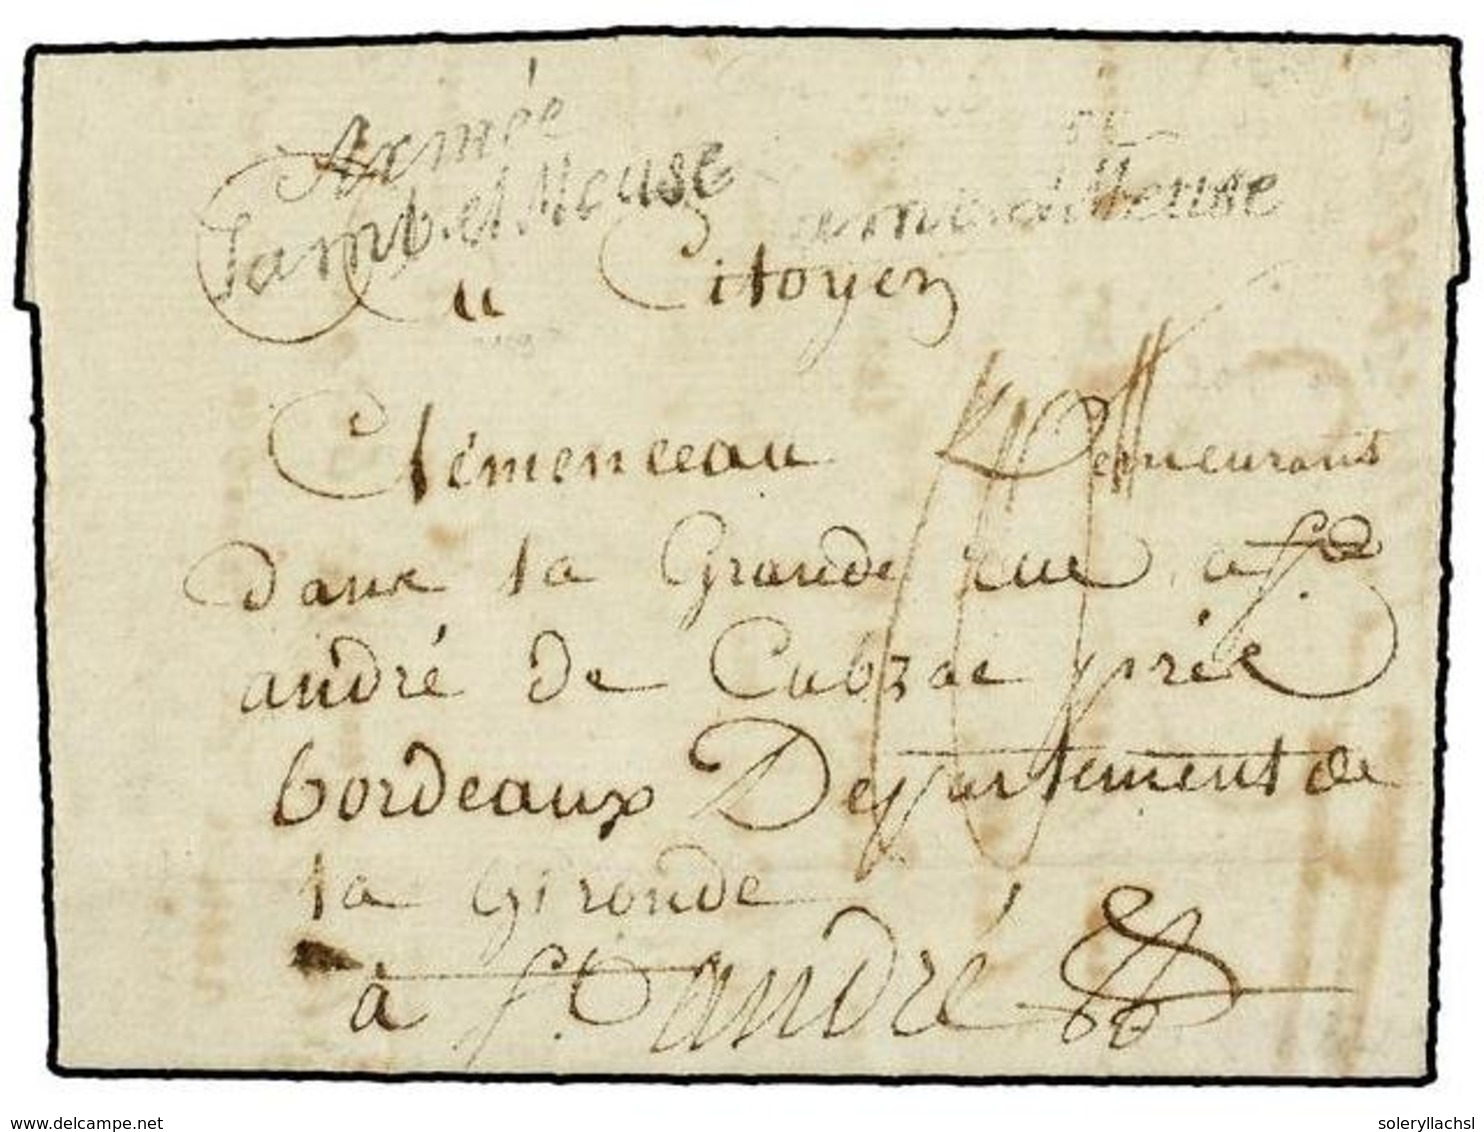 Armée
Samb. et Meuse
et Meuse
Au Citoyen
Clémenceau Demeurant
dans la Grande rue a St
andré de Cubzac près
bordeaux Departement de
la Gironde
à St andré
www.delcampe.net
soleryllachsl